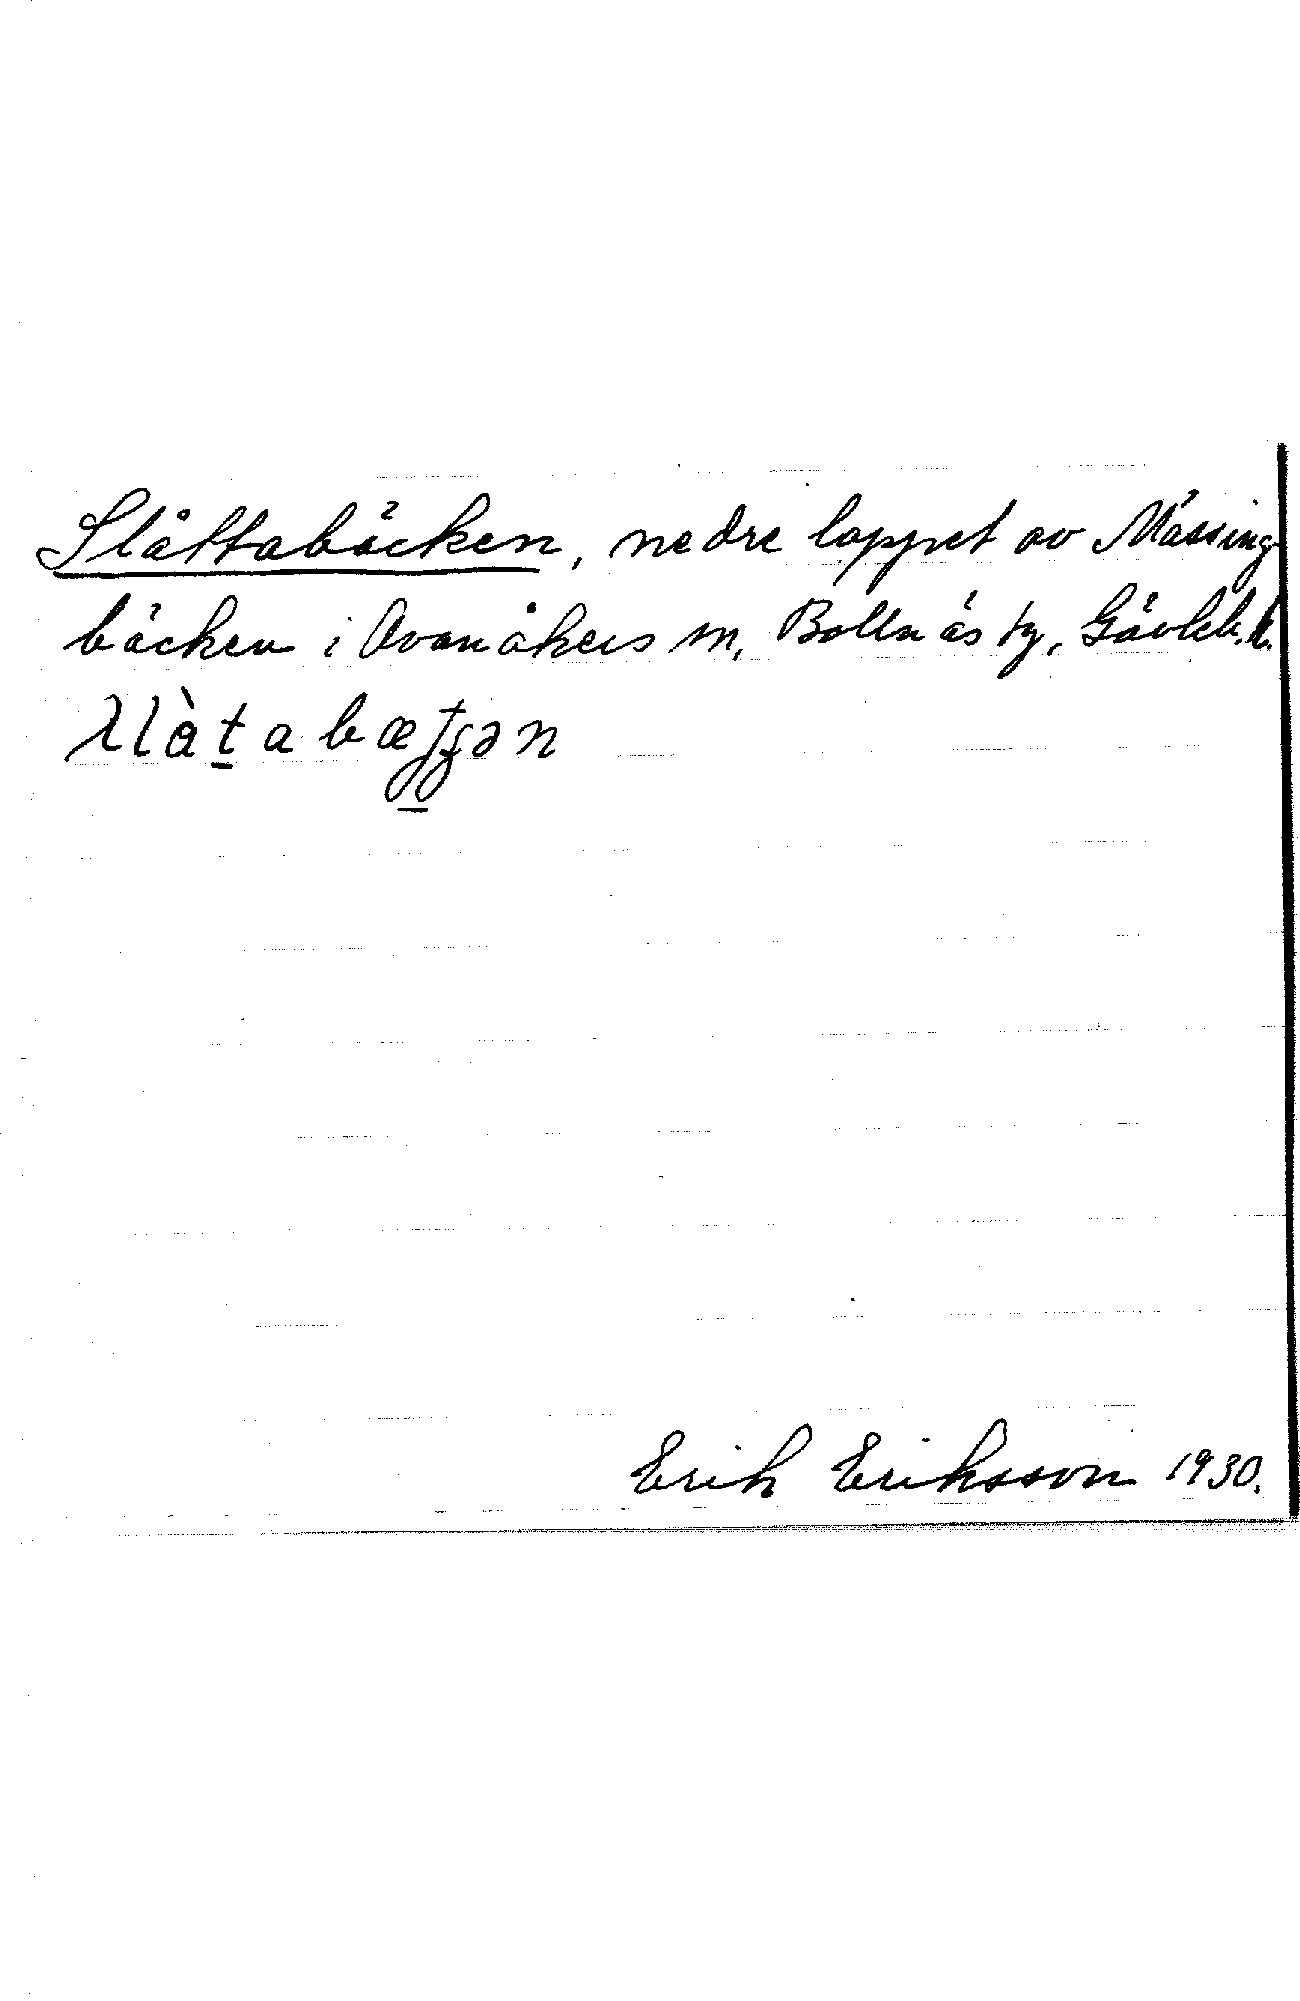 Slåttabäcken, nedre loppet av Mässing-
bäcken i Ovanåkers sn, Bollnäs tg, Gävleb. l.
Erik Eriksson 1930.